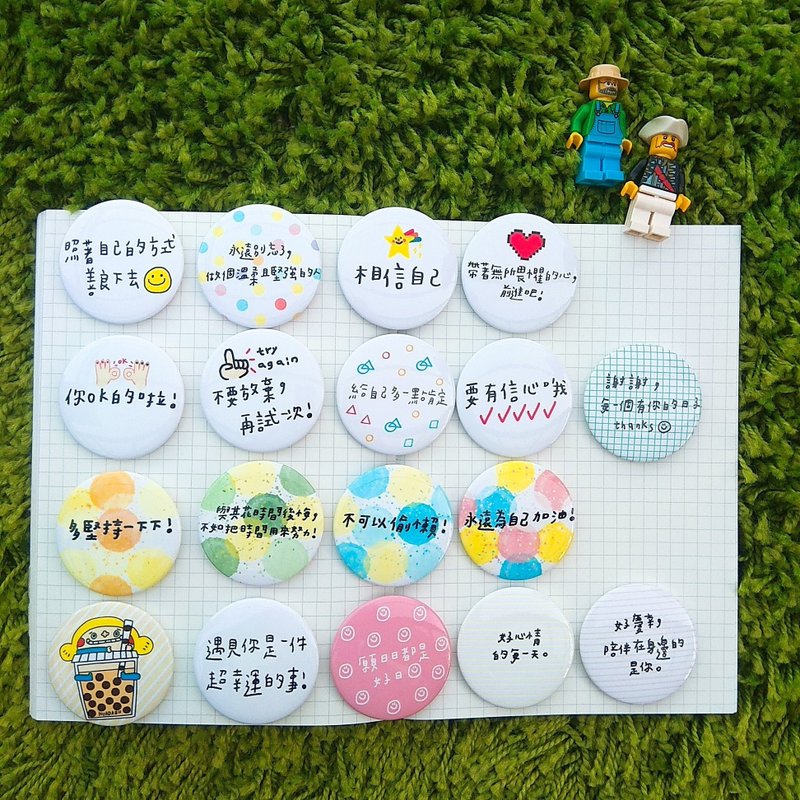 照著自己的方式
善良下去
永遠別忘了,
做個溫柔且堅強的人
相信自己
帶著無所畏懼的心,
前進吧!
OK
你OK的啦!
try
again
不要放棄,
再試一次!
給自己多一點肯定
要有信心哦
謝謝,
每一個有你的日子
thanks
多堅持一下下!
與其花時間後悔,
不如把時間用來努力!
不可以偷懶!
永遠為自己加油!
遇見你是一件
超幸運的事!
願日日都是
好日
好心情
的每一天。
好慶幸,
陪伴在身邊的
是你。